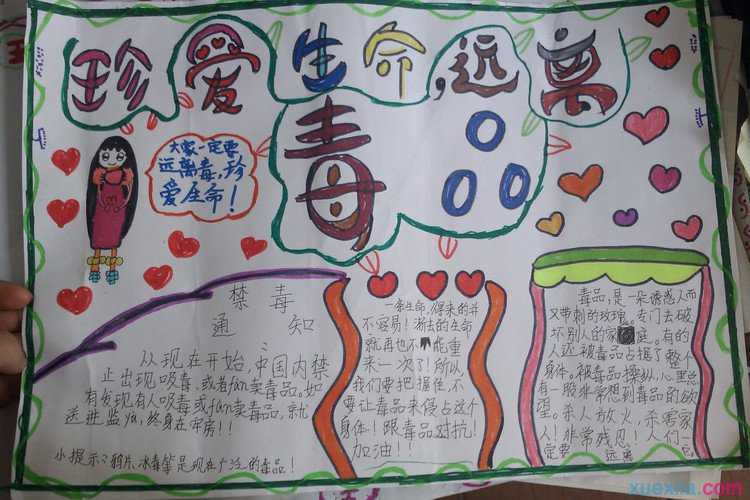 珍爱生命,远离
毒品
大家一定要
远离毒,珍
爱生命!
禁毒
通知
从现在开始,中国内禁
止出现吸毒,或者fan卖毒品。如
有发现有人吸毒或fan卖毒品,就
送进监yu,终身在牢房!!
小提示:鸦片、冰毒等是现在广泛的毒品!
一条生命,得来的并
不容易!逝去的生命
就再也不能重
来一次了!所以
我们要把握住,不
要让毒品来侵占这个
身体!跟毒品对抗!
加油!!
毒品,是一朵诱惑人而
又带刺的玫瑰,专门去破
坏别人的家庭。有的
人还被毒品占据了整个
身体。被毒品操纵,心里总
有一股非常想到毒品的欲
望。杀人放火,杀害家
人!非常残忍!人们一
定要远离
xuexila.com